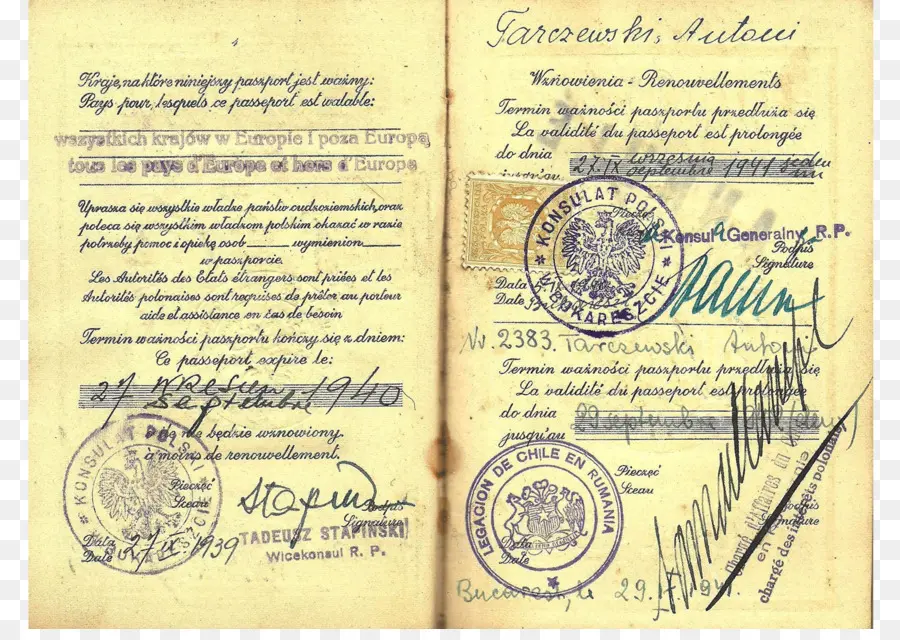 4
Kraje, na które niniejszy paszport jest ważny:
Pays pour lesquels ce passeport est walable:
wszystkich krajów w Europie i poza Europą
tous les pays d'Europe et hors d'Europe
Uprasza się wszystkie władze państw cudzoziemskich, oraz
poleca się wszystkim władzom polskim okazać w razie
potrzeby pomoc i opiekę osob wymienion
w paszporcie.
Les Autorités des Etats étrangers sont priées et les
Autorités polonaises sont requises de prêter au porteur
aide et assistance en cas de besoin
Termin ważności paszportu kończy się z dniem:
Ce passeport expire le:
27 września 1940
septembre
o ile nie będzie wznowiony.
à moins de renouvellement.
KONSULAT POLSKI
Pieczęć
Sceau
Podpis
Signature
TADEUSZ STAPIŃSKI
Wicekonsul R. P.
Data
Date
27 IX 1939
Tarczewski, Antoni
Wznowienia - Renouvellements
Termin ważności paszportu przedłuża się
La validité du passeport est prolongée
do dnia
jusqu'au
27. IX września 1941
septembre
KONSULAT POLSKI
W BUKARESZCIE
Pieczęć
Konsul Generalny R. P.
Podpis
Signature
Data
Date
Nr. 2383. Tarczewski Antoni
Termin ważności paszportu przedłuża się
La validité du passeport est prolongée
do dnia
jusqu'au
29 septembre
LEGACION DE CHILE EN RUMANIA
Pieczęć
Sceau
Podpis
Signature
Chargé d'affaires du
en
chargé des intérêts polonais
Data
Date
Bucarest, le 29.